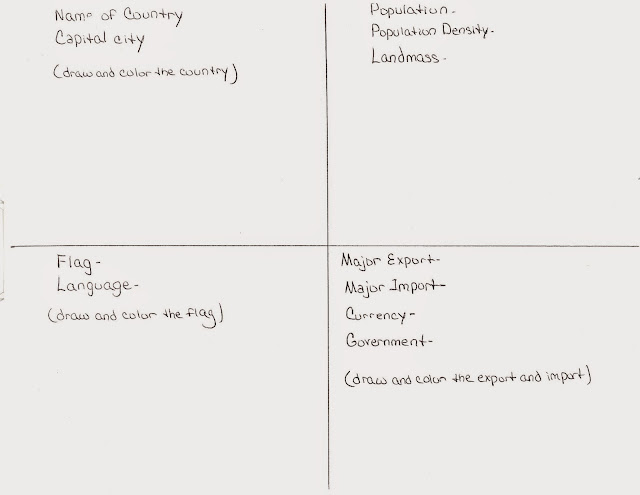 Name of Country
Capital city
(draw and color the country)
Population-
Population Density-
Landmass-
Flag-
Language-
(draw and color the flag)
Major Export-
Major Import-
Currency-
Government-
(draw and color the export and import)